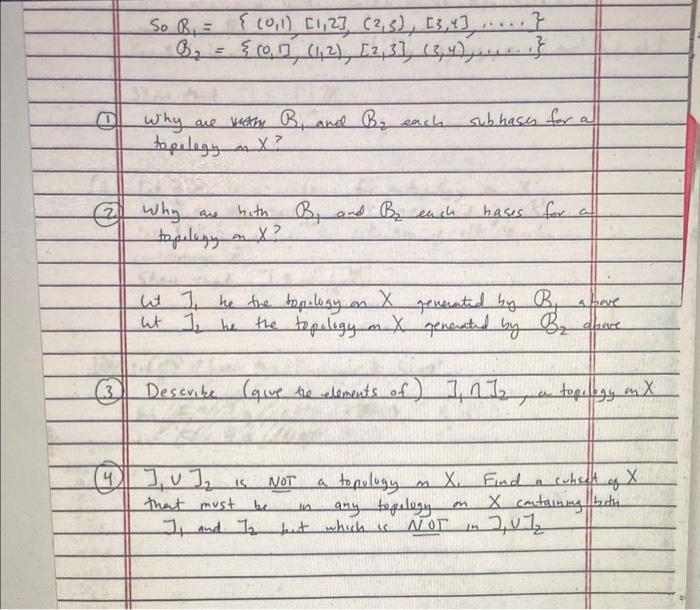 So B₁ = { (0,1) [1,2], (2,3), [3,4], ..... }
B₂ = { (0,1], (1,2), [2,3], (3,4), ...... }
① Why are B₁ and B₂ each subbases for a
topology on X?
② Why are both B₁ and B₂ each bases for a
topology on X?
Let J₁ be the topology on X generated by B₁ above
Let J₂ be the topology on X generated by B₂ above
③ Describe (give the elements of) J₁ ∩ J₂, a topology on X
④ J₁ ∪ J₂ is NOT a topology on X. Find a subset of X
that must be in any topology on X containing both
J₁ and J₂ but which is NOT in J₁ ∪ J₂